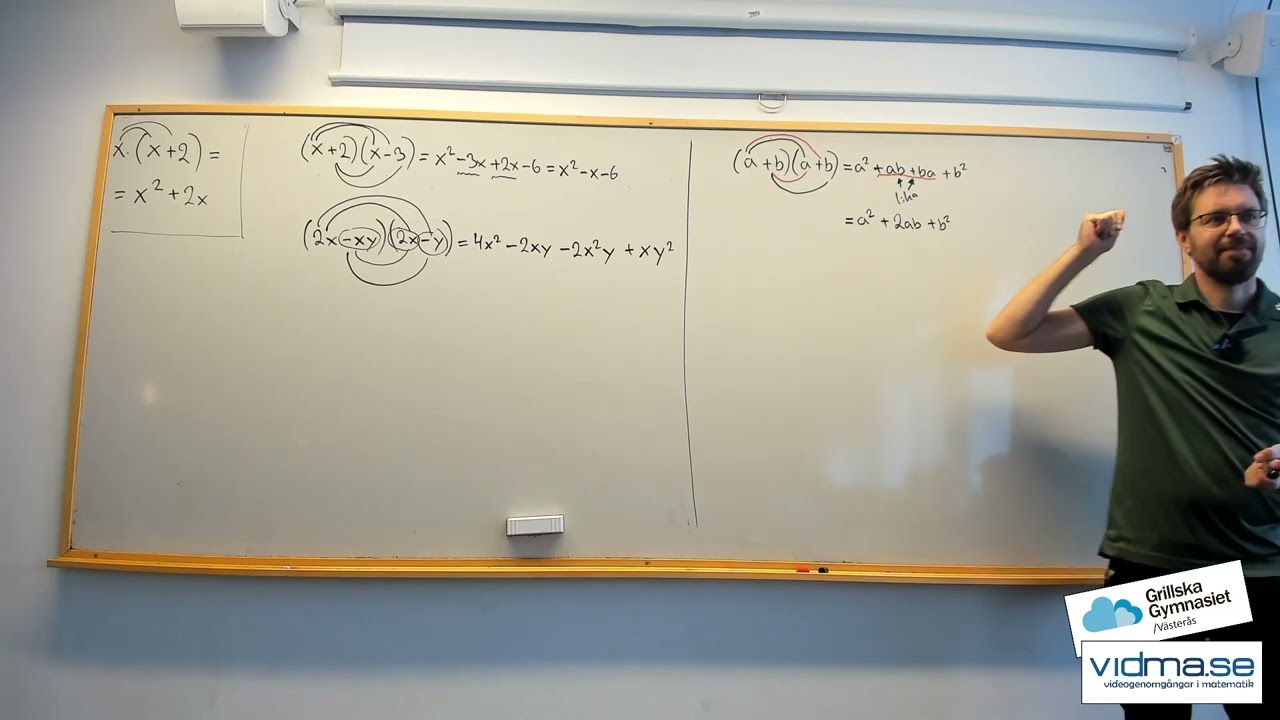 x·(x+2)=
= x²+2x
(x+2)(x-3) = x²-3x+2x-6 = x²-x-6
(2x-xy)(2x-y) = 4x²-2xy-2x²y+xy²
(a+b)(a+b) = a²+ab+ba+b²
lika
= a²+2ab+b²
Grillska
Gymnasiet
/Västerås
vidma.se
videogenomgångar i matematik